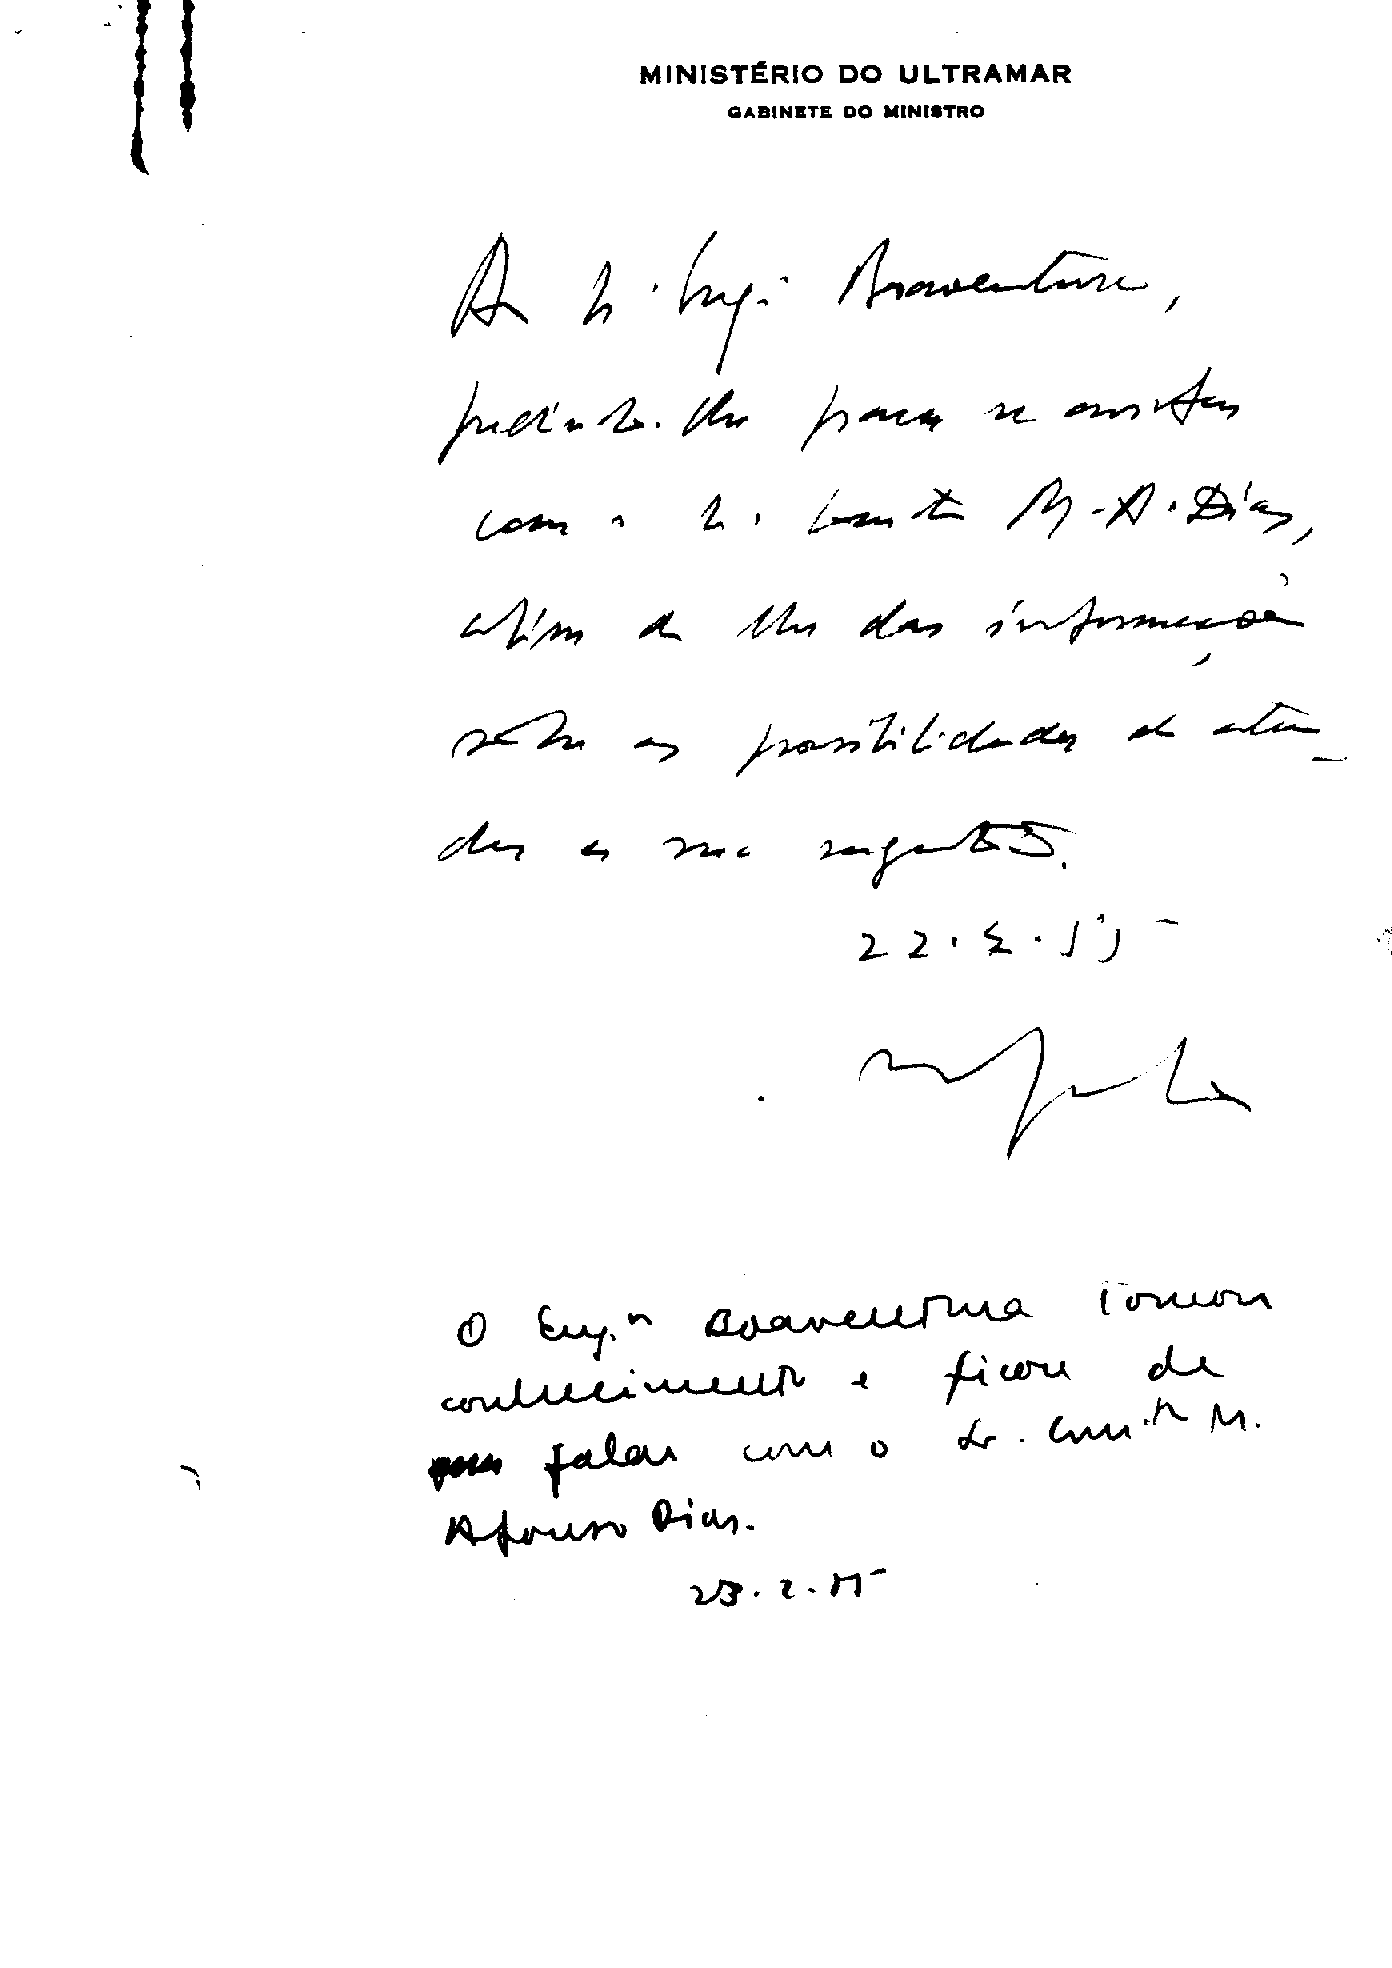 MINISTÉRIO DO ULTRAMAR
GABINETE DO MINISTRO
Ao Sr. Engº Boaventura,
pedindo-lhe para se avistar
com o Sr. Comte M. A. Dias,
afim de lhe dar informações
sobre as possibilidades de aten-
der as sua
22.2.55
O Engº Boaventura tomou
conhecimento e ficou de
falar com o Sr. Comte M.
Afonso Dias.
23.2.55